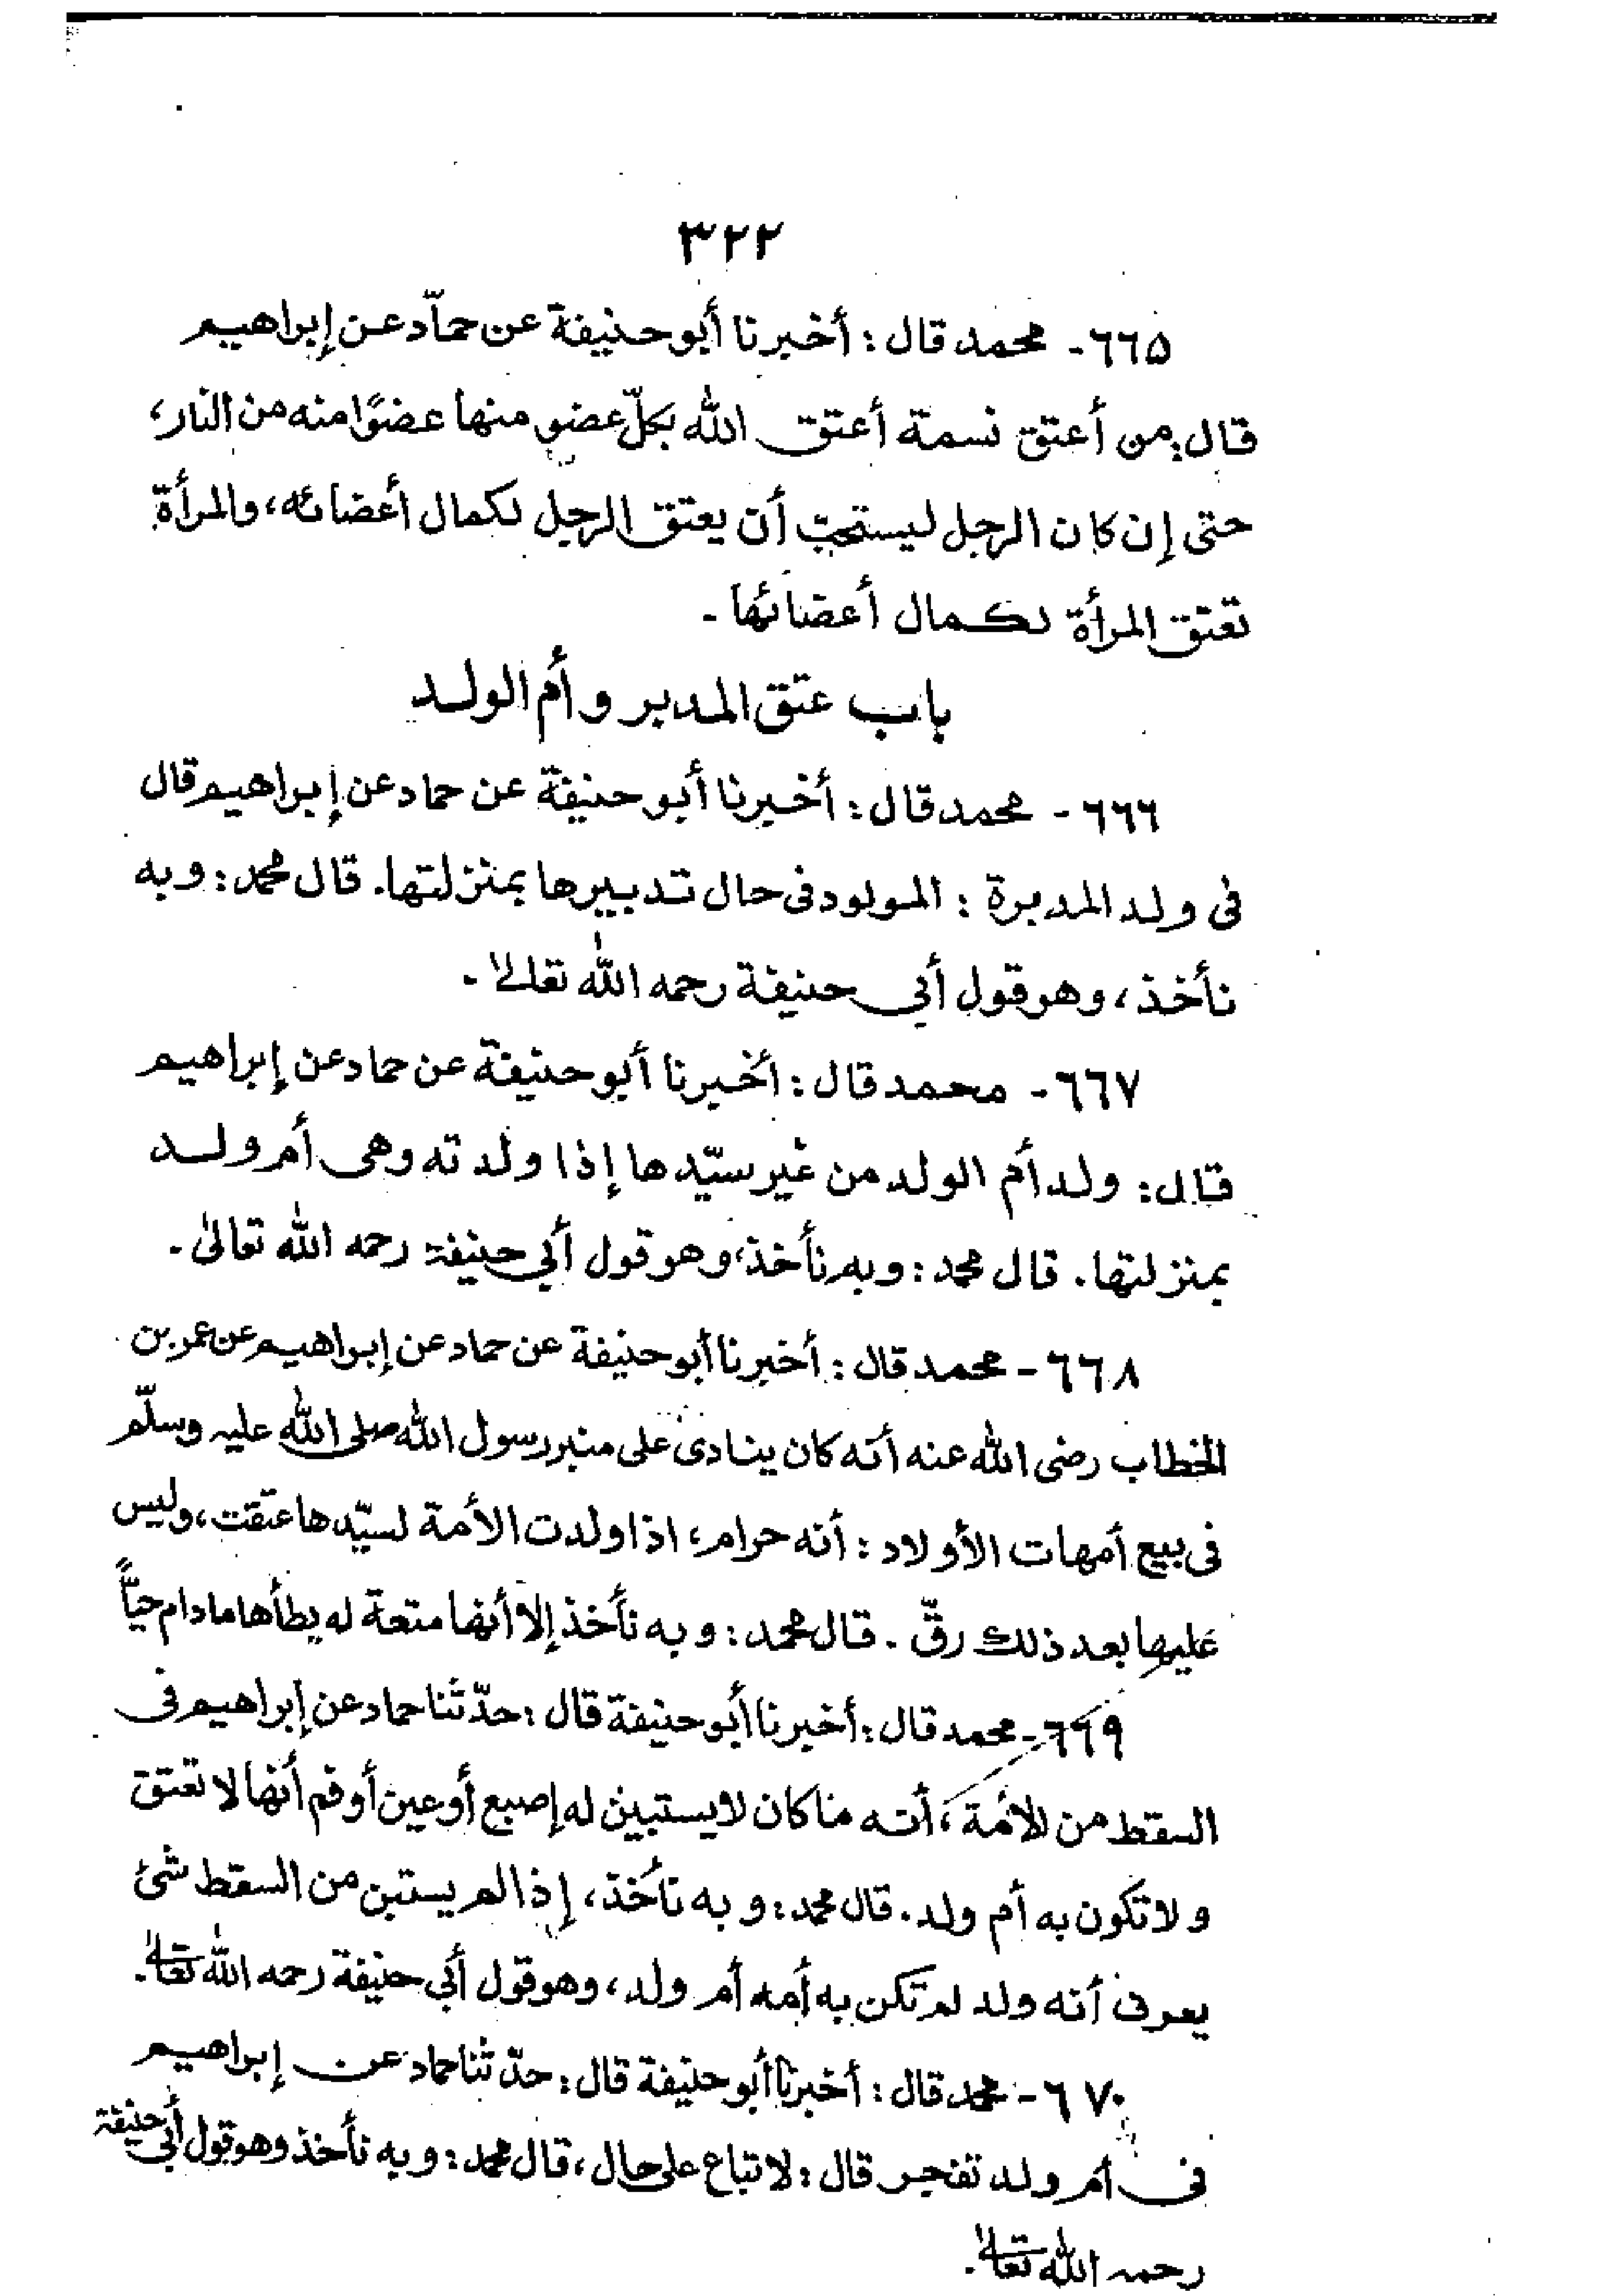 ٣٢٢
٦٦٥- محمد قال: أخبرنا أبو حنيفة عن حمّاد عن إبراهيم
قال: من أعتق نسمة أعتق الله بكلّ عضو منها عضوًا منه من النار،
حتى إن كان الرجل ليستحبّ أن يعتق الرجل لكمال أعضائه، والمرأة
تعتق المرأة لكمال أعضائها-
باب عتق المدبر و أم الولد
٦٦٦- محمد قال: أخبرنا أبو حنيفة عن حماد عن إبراهيم قال
فى ولد المدبرة: المولود فى حال تدبيرها بمنزلتها. قال محمد: وبه
نأخذ، وهو قول أبي حنيفة رحمه الله تعالى-
٦٦٧- محمد قال: أخبرنا أبو حنيفة عن حماد عن إبراهيم
قال: ولد أم الولد من غير سيّدها إذا ولدته وهى أم ولد
بمنزلتها. قال محمد: وبه نأخذ، وهو قول أبي حنيفة رحمه الله تعالىٰ-
٦٦٨- محمد قال: أخبرنا أبو حنيفة عن حماد عن إبراهيم عن عمر بن
الخطاب رضى الله عنه أنه كان ينادى على منبر رسول الله صلى الله عليه وسلّم
فى بيع أمهات الأولاد: أنه حرام، اذا ولدت الأمة لسيّدها عتقت، وليس
عليها بعد ذلك رقّ. قال محمد: وبه نأخذ إلا أنها متعة له يطأها ما دام حيًّا
٦٦٩- محمد قال: أخبرنا أبو حنيفة قال: حدّثنا حماد عن إبراهيم فى
السقط من الأمة، أنه ما كان لا يستبين له إصبع أو عين أو فم أنها لا تعتق
ولا تكون به أم ولد. قال محمد: وبه نأخذ، إذا لم يستبن من السقط شئ
يعرف أنه ولد لم تكن به أمه أم ولد، وهو قول أبي حنيفة رحمه الله تعالى.
٦٧٠- محمد قال: أخبرنا أبو حنيفة قال: حدّثنا حماد عن إبراهيم
فى أم ولد تفجر قال: لا تباع على حال، قال محمد: وبه نأخذ وهو قول أبي حنيفة
رحمه الله تعالى.